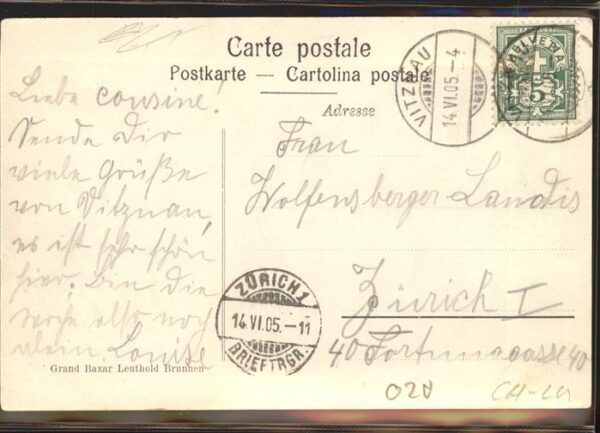 Carte postale
Postkarte — Cartolina postale
Adresse
VITZNAU
14.VI.05.-4
HELVETIA
5
Liebe Cousine!
Sende Dir
viele Grüße
von Vitznau,
es ist sehr schön
hier. Bin die
Woche also noch
allein. Louise
Frau
Wolfensberger Landis
Zürich I
40 Fortunagasse 40
ZÜRICH 1
14.VI.05.-11
BRIEFTRGR.
Grand Bazar Leuthold Brunnen